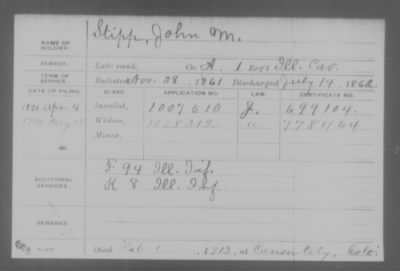 NAME OF SOLDIER: Stipp, John M.
SERVICE: Late rank, Co A, 1 Reg't Ill. Cav.
TERM OF SERVICE: Enlisted Nov. 28, 1861 Discharged July 14, 1862
DATE OF FILING. CLASS. APPLICATION NO. LAW. CERTIFICATE NO.
1891 Apr. 4 Invalid, 1007010 J. 699104.
Widow, 1028312 778464
Minor,
ADDITIONAL SERVICES: F 94 Ill. Inf.
K 8 Ill. Inf
REMARKS:
Died Feb 1, 1913, at Canon City, Colo.